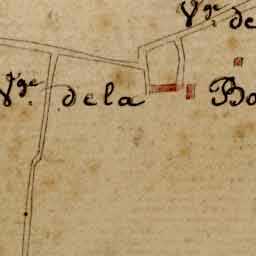 Vge de
Vge de la Bo